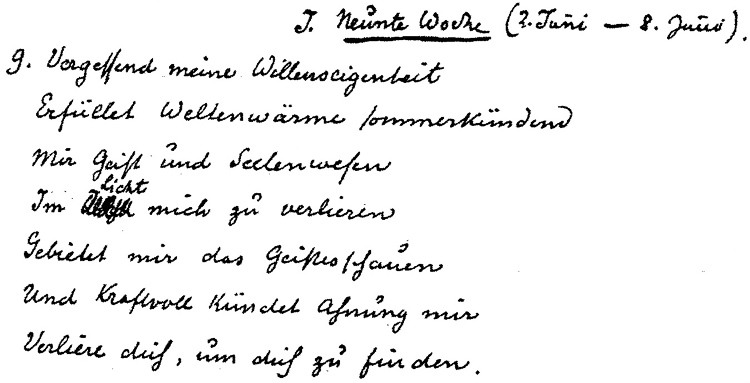 J. Neunte Woche (2. Juni – 8. Juni).
9. Vergessend meine Willenseigenheit
Erfüllet Weltenwärme sommerkündend
Mir Geist und Seelenwesen
Im Licht mich zu verlieren
Gebietet mir das Geistesschauen
Und kraftvoll kündet Ahnung mir
Verliere dich, um dich zu finden.